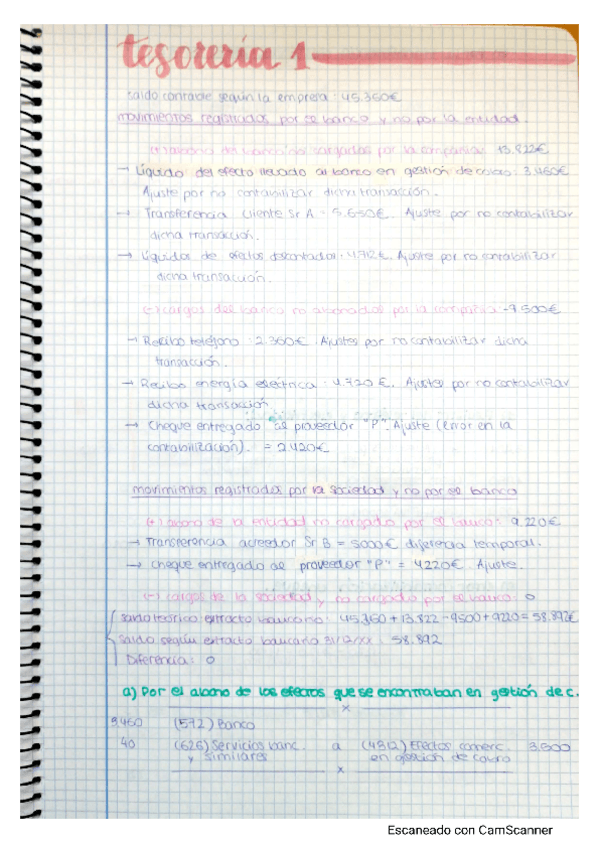 tesorería 1
saldo contable según la empresa: 45.360€
movimientos registrados por el banco y no por la entidad.
(+) abono del banco no cargadas por la compañía: 13.822€
→ Líquido del efecto llevado al banco en gestión de cobro: 3.460€
Ajuste por no contabilizar dicha transacción.
→ Transferencia cliente Sr A = 5.650€. Ajuste por no contabilizar
dicha transacción.
→ Líquidos de efectos descontados: 4.712€. Ajuste por no contabilizar
dicha transacción.
(-) cargos del banco no abonados por la compañía: -9.500€
→ Recibo teléfono: 2.360€. Ajustes por no contabilizar dicha
transacción.
→ Recibo energía eléctrica: 4.720€. Ajustes por no contabilizar
dicha transacción
→ Cheque entregado al proveedor "P". Ajuste (error en la
contabilización). = 2.420€
movimientos registrados por la sociedad y no por el banco
(+) abono de la entidad no cargado por el banco: 9.220€
→ Transferencia acreedor Sr B = 5000€ diferencia temporal.
→ cheque entregado al proveedor "P" = 4220€. Ajuste.
(-) cargos de la sociedad y no cargado por el banco: 0
saldo teórico extracto bancario: 45.360 + 13.822 - 9500 + 9220 = 58.892€
Saldo según extracto bancario 31/12/xx: 58.892
Diferencia: 0
a) Por el abono de los efectos que se encontraban en gestión de c.
x
3.460 (572) Banco
40 (626) Servicios banc. a (4312) Efectos comerc. 3.500
y similares en gestión de cobro
x
Escaneado con CamScanner